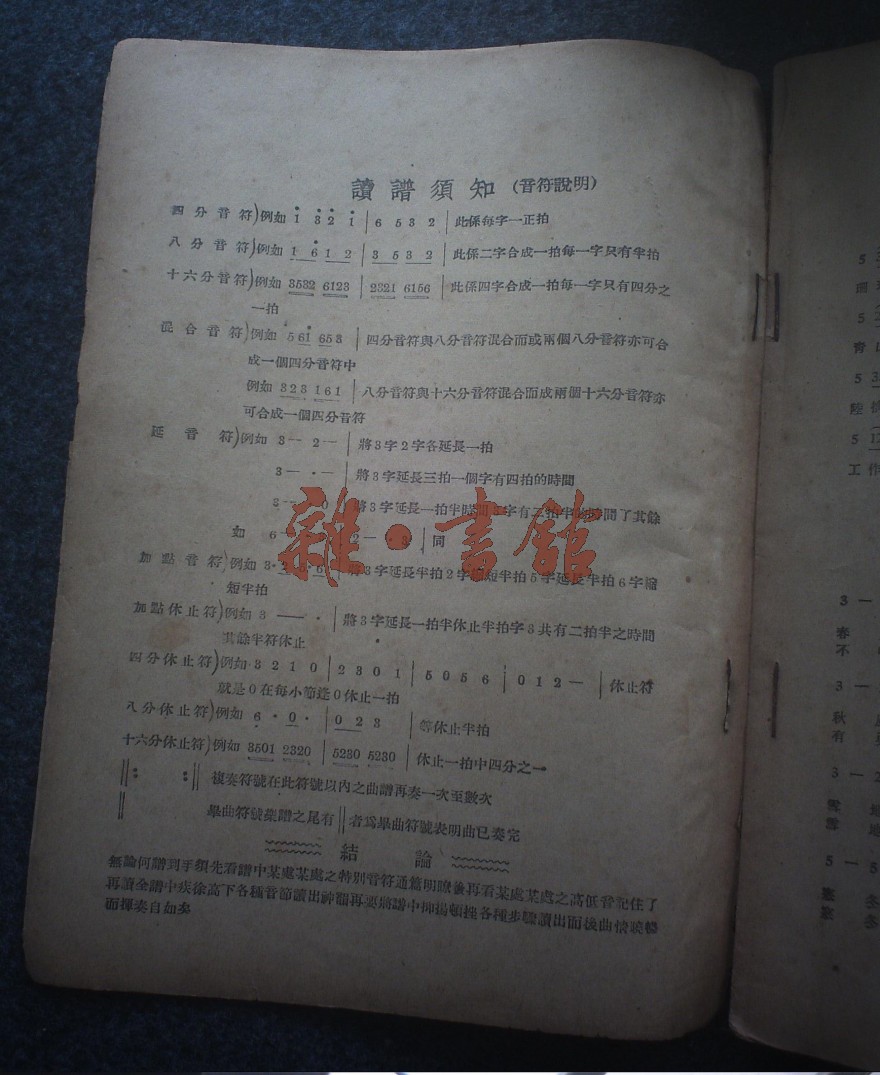 讀譜須知(音符說明)
四分音符)例如 1 3 2 1 | 6 5 3 2 | 此係每字一正拍
八分音符)例如 1 6 1 2 | 3 5 3 2 | 此係二字合成一拍每一字只有半拍
十六分音符)例如 3532 6123 | 2321 6156 | 此係四字合成一拍每一字只有四分之
一拍
混合音符)例如 5 61 653 | 四分音符與八分音符混合而或兩個八分音符亦可合
成一個四分音符中
例如 323 161 | 八分音符與十六分音符混合而成兩個十六分音符亦
可合成一個四分音符
延音符)例如 3— 2— | 將3字2字各延長一拍
3— ·— | 將3字延長三拍一個字有四拍的時間
3— 0 | 將3字延長一拍半時間3字有二拍半 時間了其餘
如 6— 2— · 3 | 同
雜·書館
加點音符)例如 3· 2 6 | 將3字延長半拍2字縮短半拍5字延長半拍6字縮
短半拍
加點休止符)例如 3 —— · | 將3字延長一拍半休止半拍字3共有二拍半之時間
其餘半符休止
四分休止符)例如·3 2 1 0 | 2 3 0 1 | 5 0 5 6 | 0 1 2 — | 休止符
就是0在每小節逢0休止一拍
八分休止符)例如 6 · 0 · | 0 2 3 | 等休止半拍
十六分休止符)例如 3501 2320 | 5230 5230 | 休止一拍中四分之一
‖: :‖ 複奏符號在此符號以內之曲譜再奏一次至數次
‖ 畢曲符號樂譜之尾有‖者為畢曲符號表明曲已奏完
結論
無論何譜到手須先看譜中某處某處之特別音符通篇明瞭後再看某處某處之高低音記住了
再讀全譜中疾徐高下各種音節讀出神韻再要將譜中抑揚頓挫各種步驟讀出而後曲情曉暢
而揮奏自如矣
5 3
5 2
青
5 3
陸
5 12
工作
3 —
春
不
3 —
秋
有
3 — 2
雪 地
雪 地
5 — 5
冬
冬